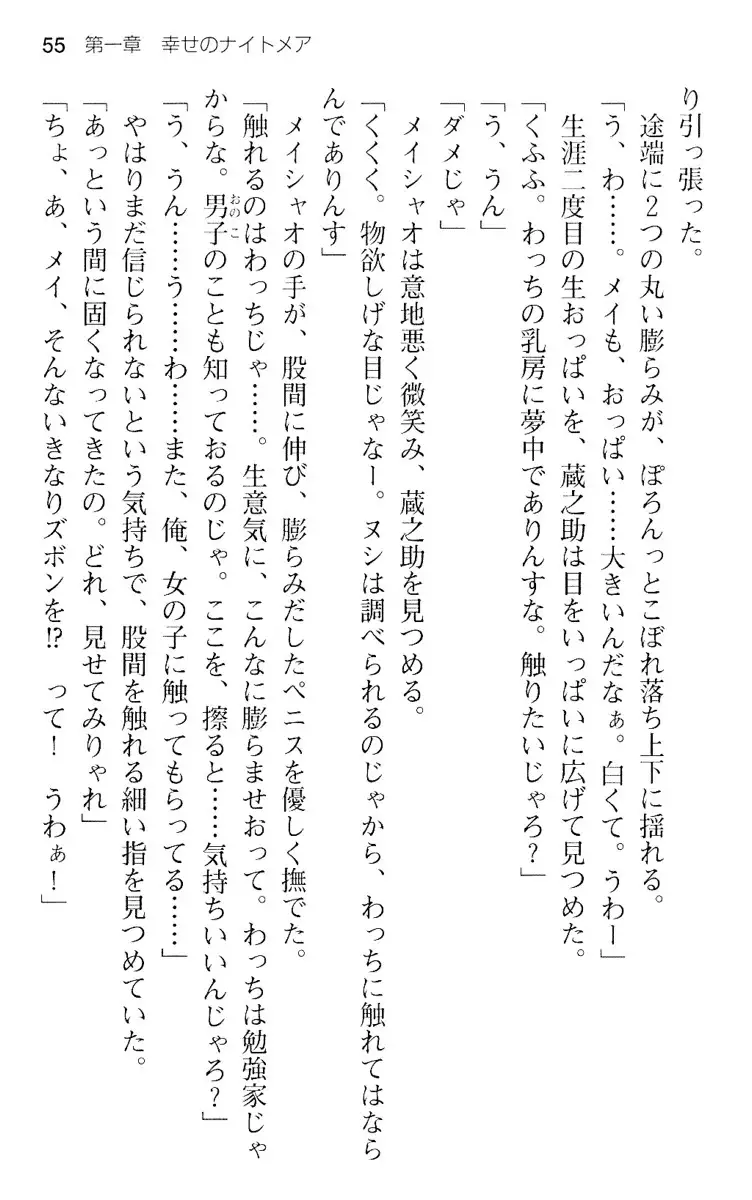 55 第一章 幸せのナイトメア
り引っ張った。
途端に2つの丸い膨らみが、ぽろんっとこぼれ落ち上下に揺れる。
「う、わ……。メイも、おっぱい……大きいんだなぁ。白くて。うわー」
生涯二度目の生おっぱいを、蔵之助は目をいっぱいに広げて見つめた。
「くふふ。わっちの乳房に夢中でありんすな。触りたいじゃろ？」
「う、うん」
「ダメじゃ」
メイシャオは意地悪く微笑み、蔵之助を見つめる。
「くくく。物欲しげな目じゃなー。ヌシは調べられるのじゃから、わっちに触れてはなら
んでありんす」
メイシャオの手が、股間に伸び、膨らみだしたペニスを優しく撫でた。
「触れるのはわっちじゃ……。生意気に、こんなに膨らませおって。わっちは勉強家じゃ
からな。男子のことも知っておるのじゃ。ここを、擦ると……気持ちいいんじゃろ？」
おのこ
「う、うん……う……わ……また、俺、女の子に触ってもらってる……」
やはりまだ信じられないという気持ちで、股間を触れる細い指を見つめていた。
「あっという間に固くなってきたの。どれ、見せてみりゃれ」
「ちょ、あ、メイ、そんないきなりズボンを!?　って！　うわぁ！」